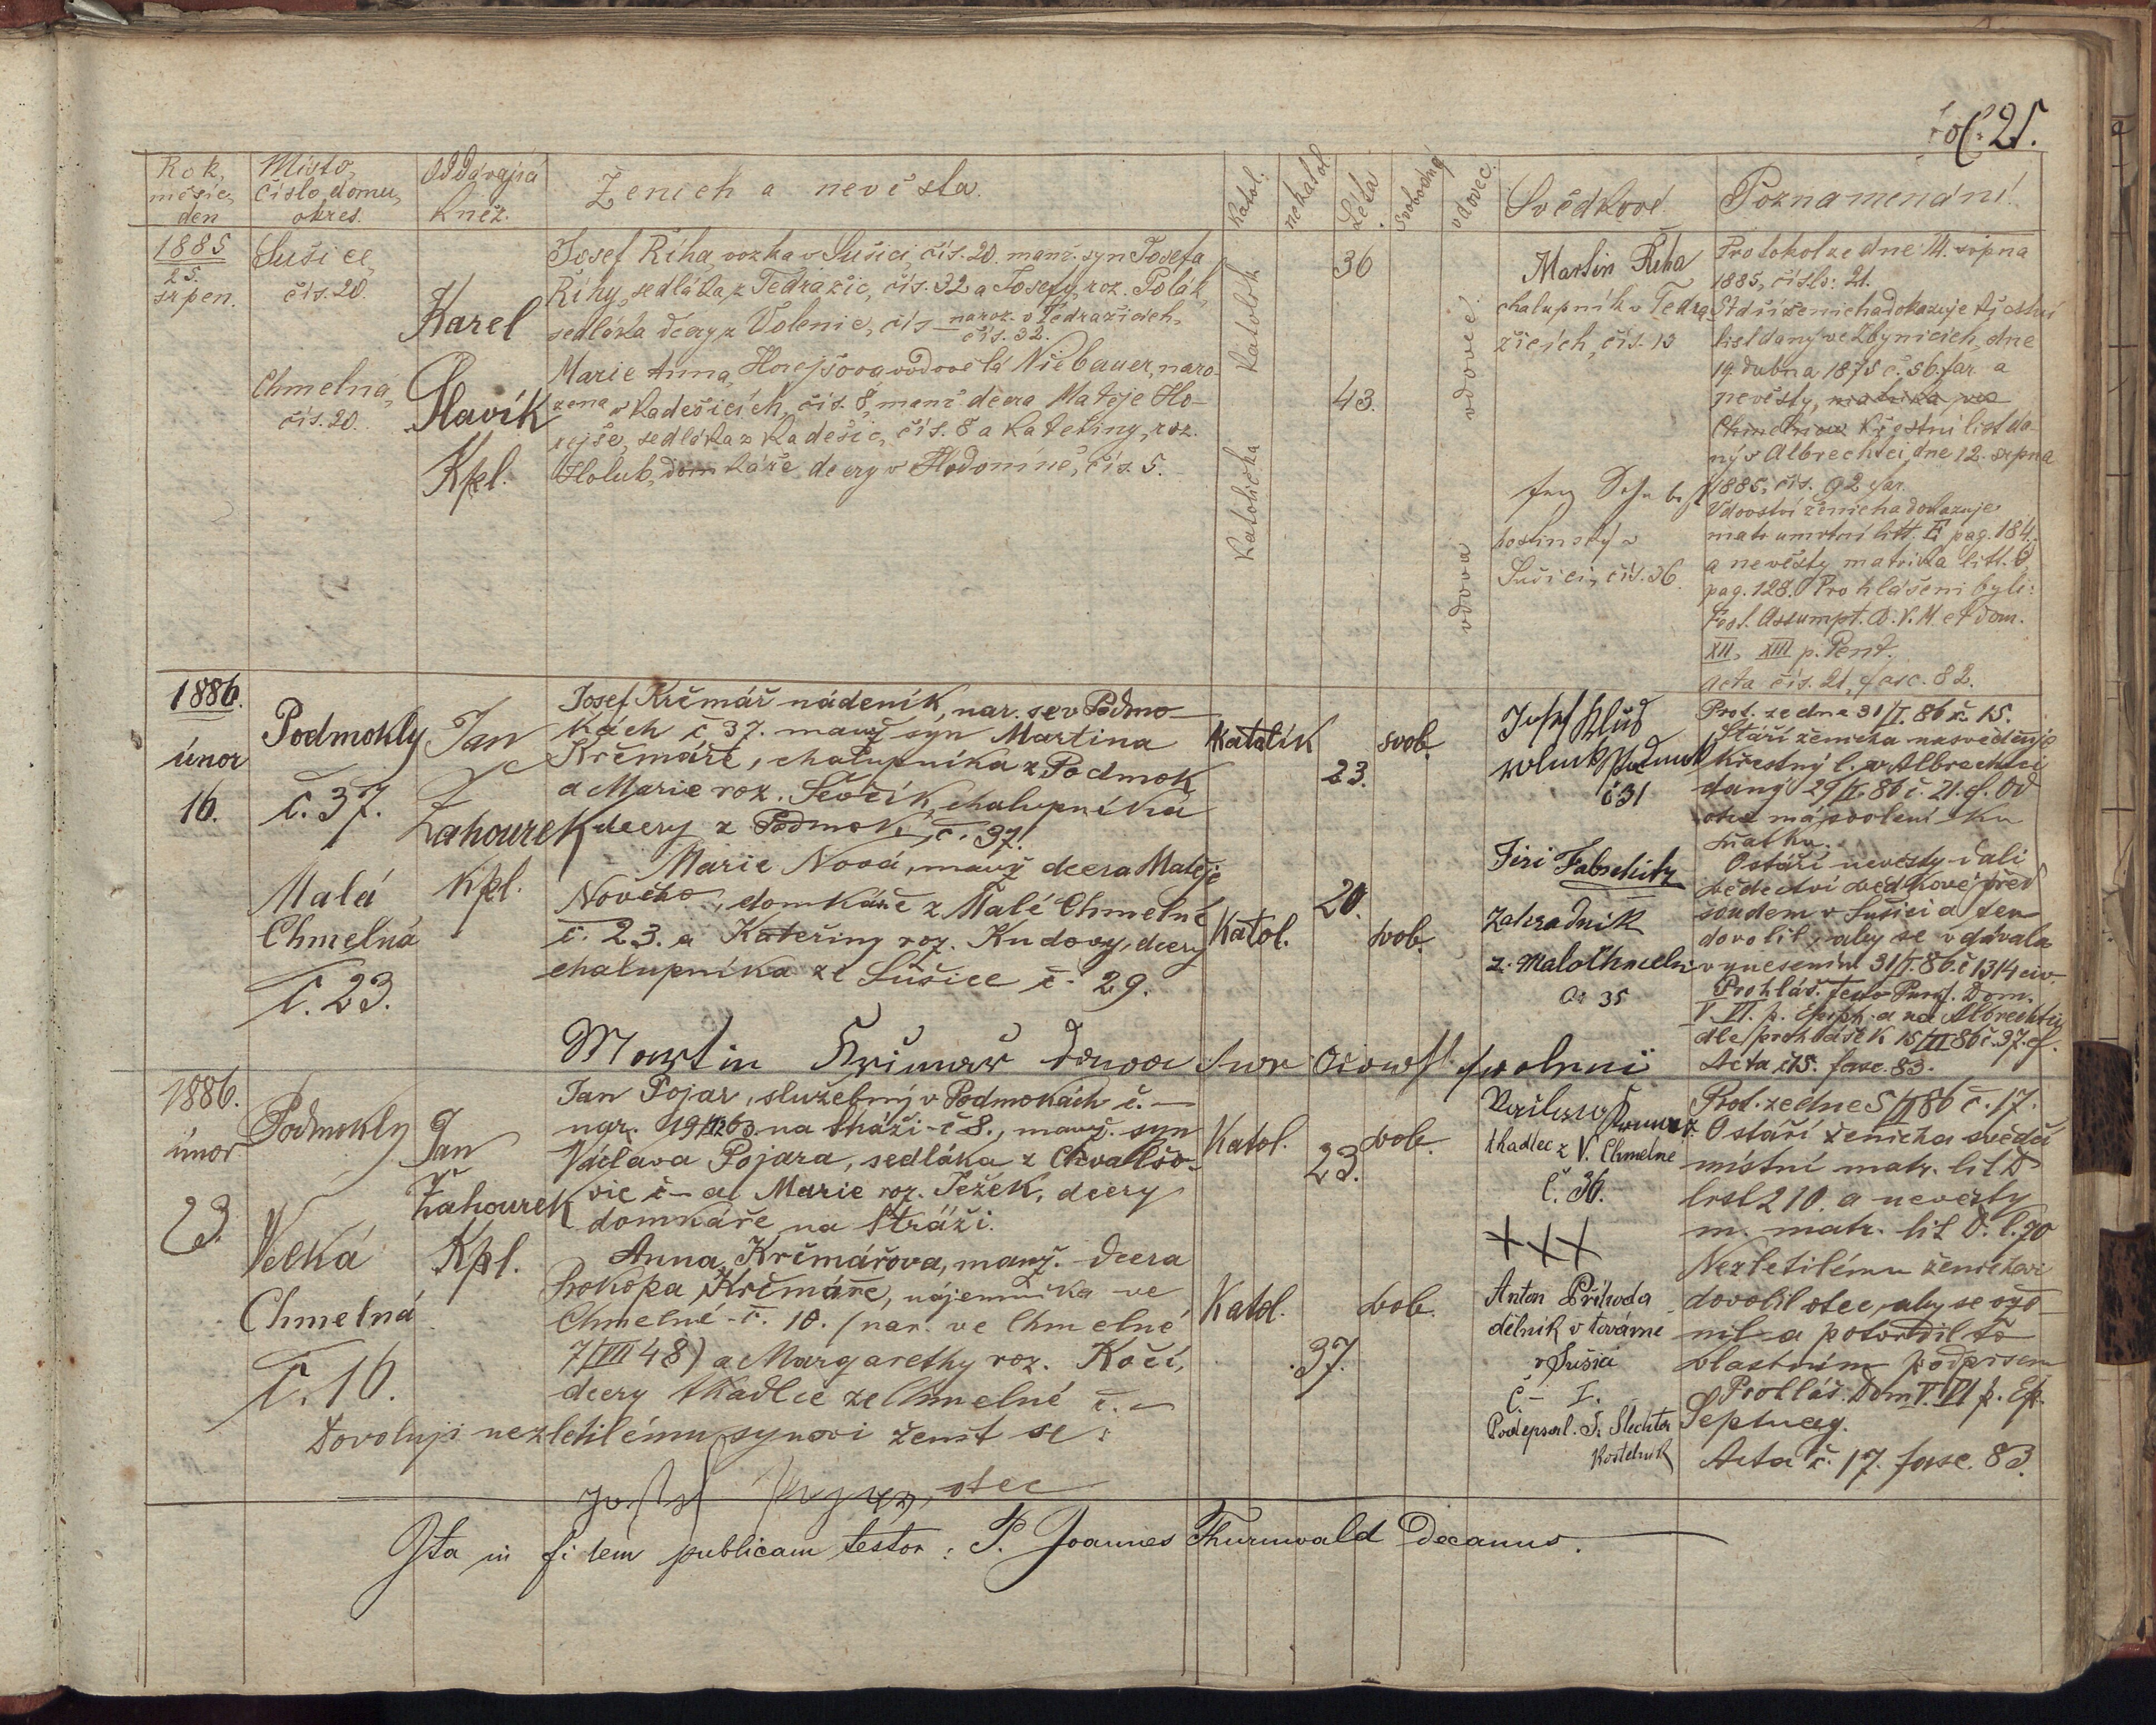 fol. 25.
Rok, měsíc, den
Místo, číslo domu, okres.
Oddávající kněz.
Ženich a nevěsta.
Katol.
nekatol
Léta
svobodný
vdovec.
Svědkové
Poznamenání
1885
25.
srpen.
Sušice,
čís. 20.
Chmelná,
čís. 20.
Karel
Slavík
Kpl.
Josef Říha, vozka v Sušici, čís. 20. manž. syn Josefa
Říhy, sedláka z Tedražic, čís. 32 a Josefy, roz. Polák,
sedláka dcery z Volenic, čís — naroz. v Tedražicích,
čís. 32.
Marie Anna, Horejšova vdověla Niebauer, naro-
zena v Kadešicích, čís. 8, manž dcera Mateje Ho-
rejše, sedláka z Kadešic, čís. 8 a Kateřiny, roz.
Holub, domkáře dcery v Hodomíně, čís. 5.
Katolík
Katolička
36
43.
vdovec
vdova
Martin Řiha
chalupník v Tedra-
žicích, čís. 13
hostinský v
Sušici, čís. 36.
Protokol ze dne 14. srpna
1885, číslo: 21.
Stáří ženicha dokazuje křestní
list daný ve Zbynicích, dne
19. dubna 1875 č. 56. far. a
nevěsty,
Křestní list da-
ný v Albrechtci dne 12. srpna
1885, čís. 92 far.
Vdovství ženicha dokazuje
matr umrtní litt. E pag. 184.
a nevěsty matrika litt.
pag. 128. Prohlášeni byli:
Fest. Assumpt. B. V. M. et dom.
XII, XIII p. Pent.
Acta čís. 21, fasc. 82.
1886.
únor
16.
Podmokly
č. 37.
Malá
Chmelná
č. 23.
Jan
Zahourek
Kpl.
Josef Krčmář nádeník, nar. se v Podmo-
kách č 37. manž syn Martina
Krčmáře, chalupníka z Podmok
a Marie roz. Ševčík, chalupníka
dcery z Podmok, č. 37.
Marie Nová, manž dcera Matěje
Nového, domkáře z Malé Chmelné
č. 23. a Kateřiny roz. Kudovy, dcery
chalupníka ze Sušice č. 29.
Katolík
23.
svob.
Katol.
20.
svob.
Josef
rolník
č 31
Jiri
Zahradník
z. Malo Chmelni
35
Prot. ze dne 31/I. 86 č. 15.
Stáří ženicha nasvědčuje
křestný l. v Albrechtci
daný 29/I. 86 č. 21. cf. Od
otce má povolení ku
sňatku.
O stáří nevěsty dali
svědectví svědkové před
soudem v Sušici a ten
dovolil, aby se vdávala
vynesením 31/I. 86. č 1314 civ.
Prohláš. Dom.
V. VI. p. Epiph. a na Albrechtic
dle prohlášek 15/II 86 č. 37. cf.
Acta č 15. fasc. 83.
Martin Krčmář
1886.
únor
23.
Podmokly
Velká
Chmelná
č. 16.
Jan
Zahourek
Kpl.
Jan Pojar, služebný v Podmokách č. —
nar. na Stráži č 8., manž. syn
Václava Pojara, sedláka z Chvalšo-
vic č — a Marie roz. Ježek, dcery
domkáře na Stráži.
Anna Krčmářova, manž. dcera
Prokopa Krčmáře, nájemníka ve
Chmelné č. 10. (nar. ve Chmelné
7/VII 48) a Margarethy roz. Kočí,
dcery tkadlce ze Chmelné č. —
Dovoluji nezletilému synovi ženit se:
otec
Katol.
23.
svob.
Katol.
37.
svob.
tkadlec z V. Chmelne
č. 36.
+++
Anton Příhoda
dělník v továrne
v Sušici
č. — I.
Podepsal. J. Šlechta
Kostelník
Prot. ze dne 5/II 86 č. 17.
O stáří ženicha svědčí
místní matr. lit D
list 210. a nevěsty
m. matr. lit D. l. 70
Nezletilému ženichovi
dovolil otec, aby seože-
nil a potvrdil to
vlastním podpisem
Prohláš. Dom V. VI p. Ep.
Septuag.
Acta č. 17. fasc. 83.
Ita in fidem publicam testor: P. Joannes Thurnwald Decanus.